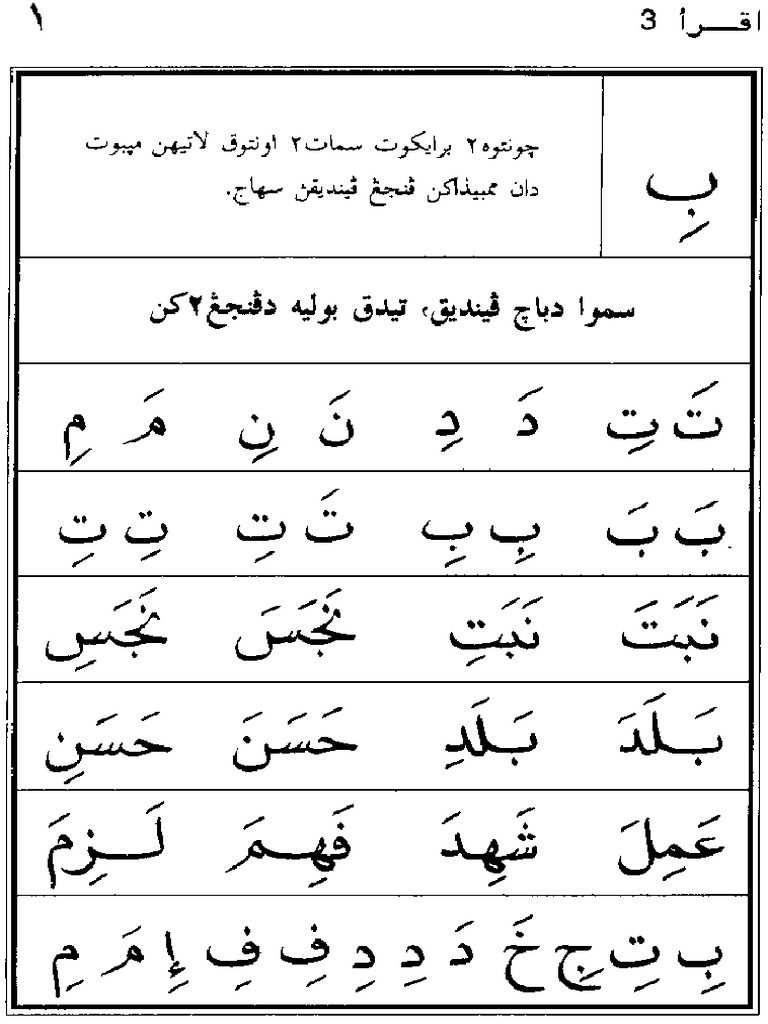 اقـــرأ 3 ١
بِ
چونتوه٢ برايكوت سمات٢ اونتوق لاتيهن مپبوت
دان ممبيذاكن ڤنجڠ ڤينديقڽ سهاج.
سموا دباچ ڤينديق، تيدق بوليه دڤنجڠ٢كن
تَ تِ دَ دِ نَ نِ مَ مِ
بَ بَ بِ بِ تَ تِ تِ تِ
نَبَتَ نَبَتِ نَجَسَ نَجَسِ
بَـلَدَ بَـلَدِ حَسَنَ حَسَنِ
عَمِلَ شَهِدَ فَهِـمَ لَـزِمَ
بِ تِ جِ خَ دَ دِ دِ فِ فِ إِ مَ مِ